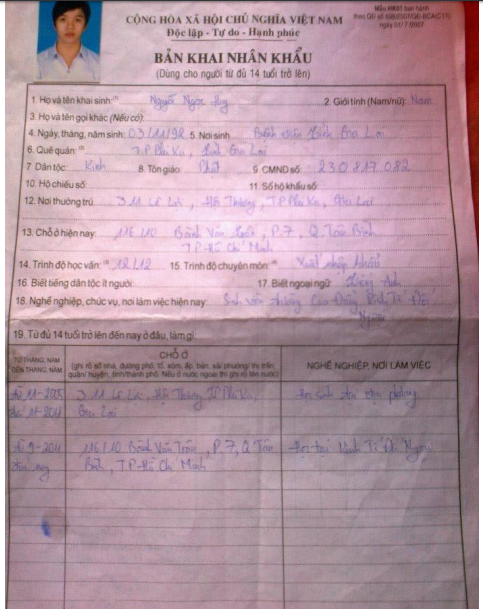 Mẫu HK01 ban hành
theo QĐ số 698/2007/QĐ-BCA(C11)
ngày 01/7/2007
CỘNG HÒA XÃ HỘI CHỦ NGHĨA VIỆT NAM
Độc lập - Tự do - Hạnh phúc
BẢN KHAI NHÂN KHẨU
(Dùng cho người từ đủ 14 tuổi trở lên)
1. Họ và tên khai sinh: Nguyễn Ngọc Huy 2. Giới tính (Nam/nữ): Nam
3. Họ và tên gọi khác (Nếu có):
4. Ngày, tháng, năm sinh: 03/11/92 5. Nơi sinh Bệnh viện Tỉnh Gia Lai
6. Quê quán: TP Plei Ku, Tỉnh Gia Lai
7 Dân tộc: Kinh 8. Tôn giáo: Phật 9. CMND số: 230817082
10. Hộ chiếu số: 11. Số hộ khẩu số:
12. Nơi thường trú 311 Lê Lợi, Hội Thương, TP Plei Ku, Gia Lai
13. Chỗ ở hiện nay: 116/10 Bành Văn Trân, P.7, Q. Tân Bình
TP-Hồ Chí Minh
14. Trình độ học vấn: 12/12 15. Trình độ chuyên môn: Xuất nhập khẩu
16. Biết tiếng dân tộc ít người: 17. Biết ngoại ngữ: Tiếng Anh
18. Nghề nghiệp, chức vụ, nơi làm việc hiện nay: Sinh viên trường Cao Đẳng Kinh Tế Đối
Ngoại
19. Từ đủ 14 tuổi trở lên đến nay ở đâu, làm gì
TỪ THÁNG, NĂM ĐẾN THÁNG, NĂM
CHỖ Ở
(ghi rõ số nhà, đường phố; tổ, xóm, ấp, bản, xã/ phường/ thị trấn,
quận/ huyện, tỉnh/thành phố. Nếu ở nước ngoài thì ghi rõ tên nước)
NGHỀ NGHIỆP, NƠI LÀM VIỆC
từ 11-2005 311 Lê Lợi, Hội Thương TP Plei Ku, học sinh
Gia Lai
từ 9-2011 116/10 Bành Văn Trân, P.7, Q Tân Kinh Tế Đối Ngoại
đến nay Bình, TP-Hồ Chí Minh